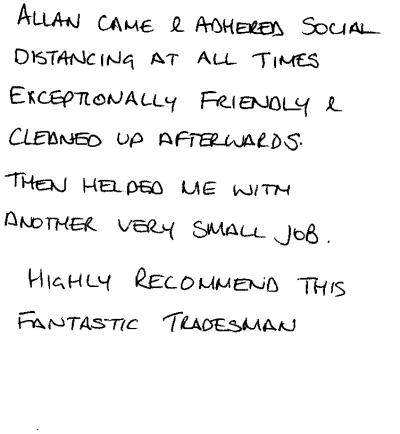 ALLAN CAME & ADHERED SOCIAL
DISTANCING AT ALL TIMES
EXCEPTIONALLY FRIENDLY &
CLEANED UP AFTERWARDS.
THEN HELPED ME WITH
ANOTHER VERY SMALL JOB.
HIGHLY RECOMMEND THIS
FANTASTIC TRADESMAN